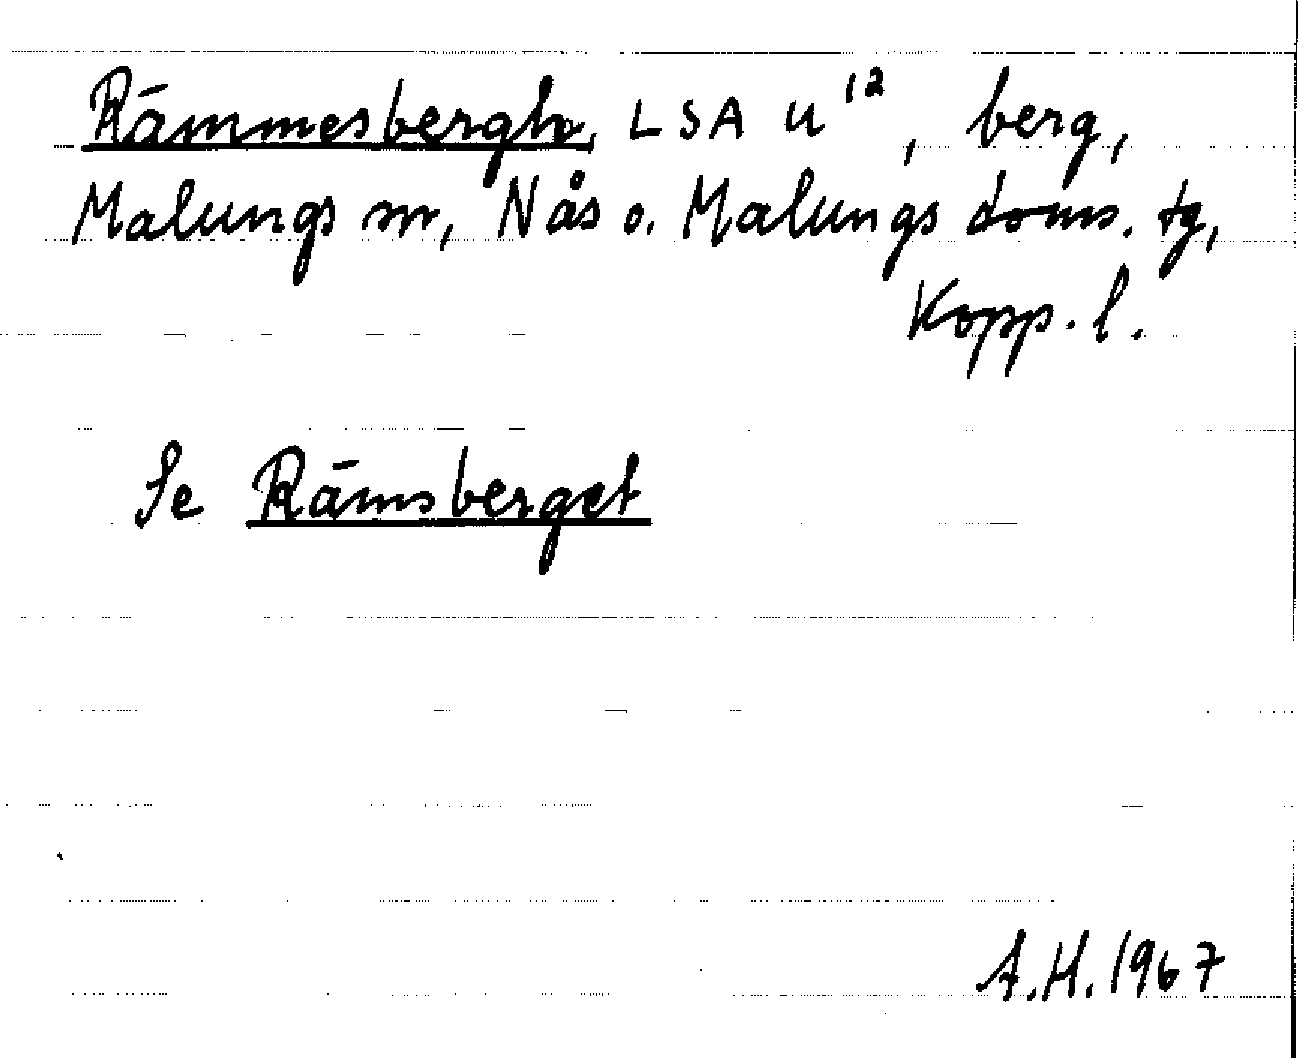 Rämmesbergh, LSA U¹², berg,
Malungs sn, Nås o. Malungs doms. tg,
Kopp. l.
Se Rämsberget
A.H. 1967